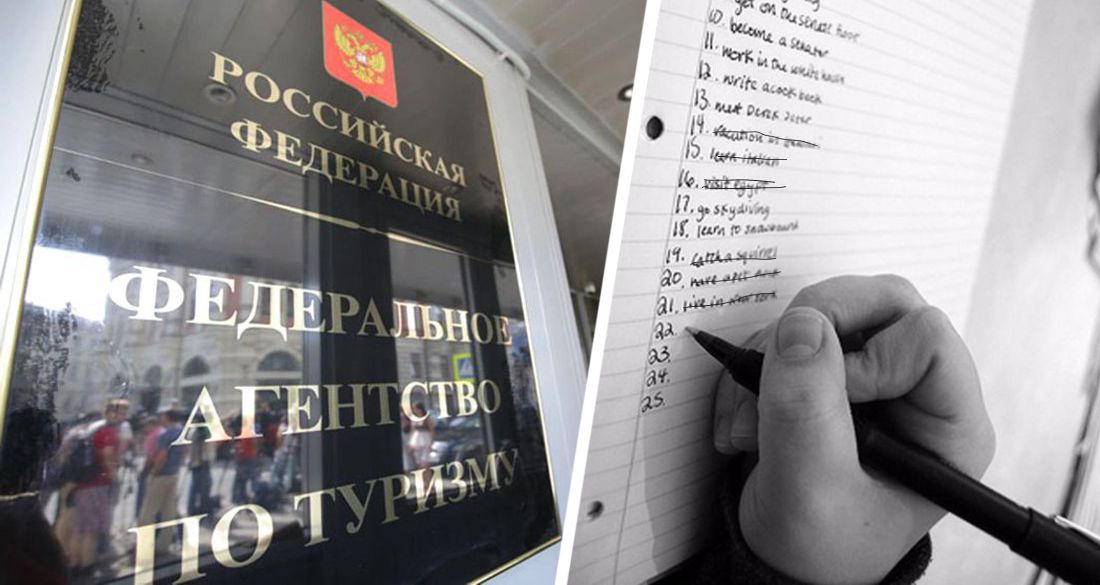 РОССИЙСКАЯ
ФЕДЕРАЦИЯ
ФЕДЕРАЛЬНОЕ
АГЕНТСТВО
ПО ТУРИЗМУ
get on the senate floor
10. become a senator
11. work in the white house
12. write a cook book
13. meet Derek Jeter
14. vacation in
15. learn italian
16. visit egypt
17. go skydiving
18. learn to snowboard
19. catch a squirrel
20. have a pet
21. live in new york
22.
23.
24.
25.